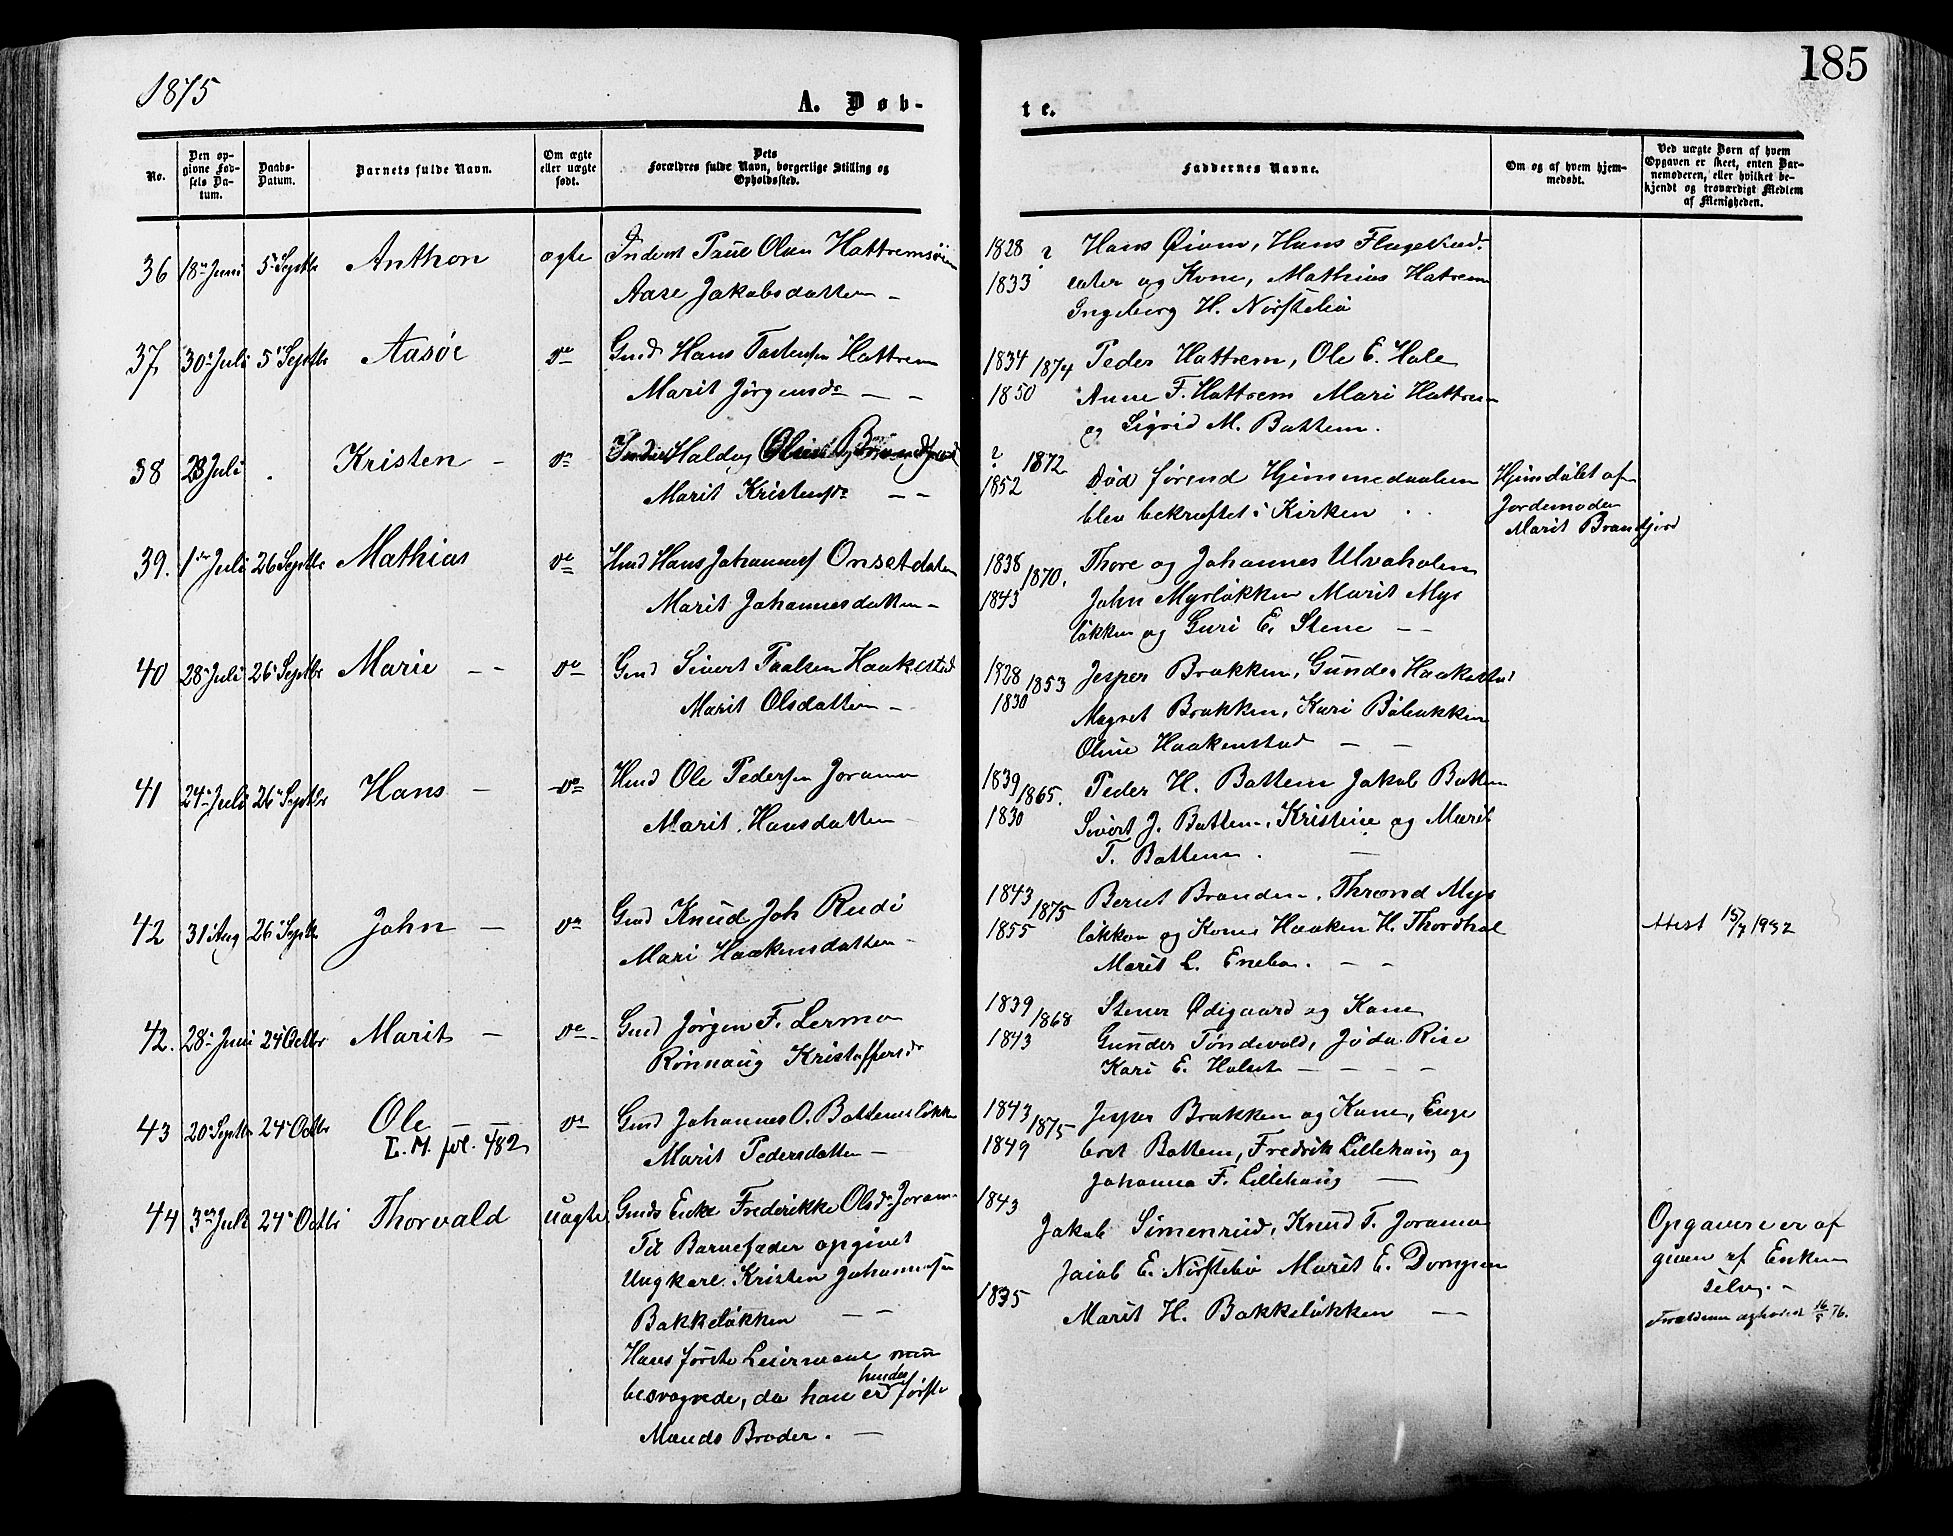 1875
185
A. Døb-
te.
No.
Den op-
givne Fød-
sels Da-
tum.
Daabs-
Datum.
Barnets fulde Navn.
Om ægte
eller uægte
født.
Dets
Forældres fulde Navn, borgerlige Stilling og
Opholdssted.
Faddernes Navne.
Om og af hvem hjem-
medøbt.
Ved uægte Børn af hvem
Opgaven er skeet, enten Bar-
nemoderen, eller hvilket be-
kjendt og troværdigt Medlem
af Menigheden.
36 18de Juni 5te Septbr Anthon ægte Inderst Olsen
Aase Jakobsdatter –
1828 ?
1833
Hans Øiom, Hans
og Kone, Mathias Hatrem
Ingeborg H. Nørstebø
37 30te Juli 5te Septbr Aasøe do Gmd Hans Hattrem
Marit Jørgensdr – –
1834 1874
1850
Peder Hattrem, Ole E. Hole
Anne F. Hattrem Mari Hattrem
og Sigrid M. Battem.
38 28 Juli . Kristen – do Halvog
Marit Kristensdr – –
? 1872
1852
Død førend Hjemmedaaben
blev bekræftet i Kirken . .
Hjemdøbt af
Jordemoder
Marit Brandfjord
39. 1ste Juli 26 Septbr Mathias do Hmd Hans Johannes Onsetdalen
Marit Johannesdatter –
1838 1870.
1843
Thore og Johannes Ulvaholen
John Mysløkken Marit Mys
løkken og Guri E. Stene – –
40 28de Juli 26 Septbr Marie – – do Gmd Sivert Paalsen Haakenstad
Marit Olsdatter –
1828 1853
1830
Jesper Brækken, Gunder Haakenstad
Magret Brækken, Kari Bøløkken
Oline Haakenstad – –
41 24de Juli 26 Septbr Hans – do Hmd Ole Pedersen Joramo
Marit Hansdatter –
1839 1865.
1830
Peder H. Battem Jakob Battem
Sivert J. Battem, Kristine og Marit
T. Battem. –
42 31 Aug 26 Septbr John – do Gmd Knud Joh Rudi
Mari Haakensdatter –
1843 1875
1855
Bernt Branden, Thrond Mys
løkken og Kone Haaken H. Thordhol
Marit L. Enebo. – –
Attest 15/7 1932
42. 28de Juni 24 Octbr Marit – do Gmd Jørgen F. Lermo
Rønnaug Kristoffersdr
1839 1868
1843
Stener Ødegaard og Kone
Gunder Tøndevold, Jøda Rise
Kari E. Holset – – – –
43 20 Septbr 24 Octbr Ole – – do Gmd Johannes O. Battemsløkken
E. M. fol. 482
Marit Pedersdatter –
1843 1875
1849
Jesper Brækken og Kone, Enge
bret Battem, Fredrik Lillehaug og
Johanna F. Lillehaug –
44 3die Juli 24de Octbr Thorvald uægte Gmds Enke Frederikke Olsdr Joramo
Til Barnefader opgivet
Ungkarl Kristen Johannesen
Bakkeløkken – –
Hans første Leiermaal men
besvogrede, da han er hendes første
Mands Broder. –
1843
1835
Jakob Simenrud, Knud T. Joramo
Jakob E. Nørstebø Marit E.
Marit H. Bakkeløkken – –
Opgaven er af
given af Enken
selv. –
Forældrene ægteviet 16/5 76.